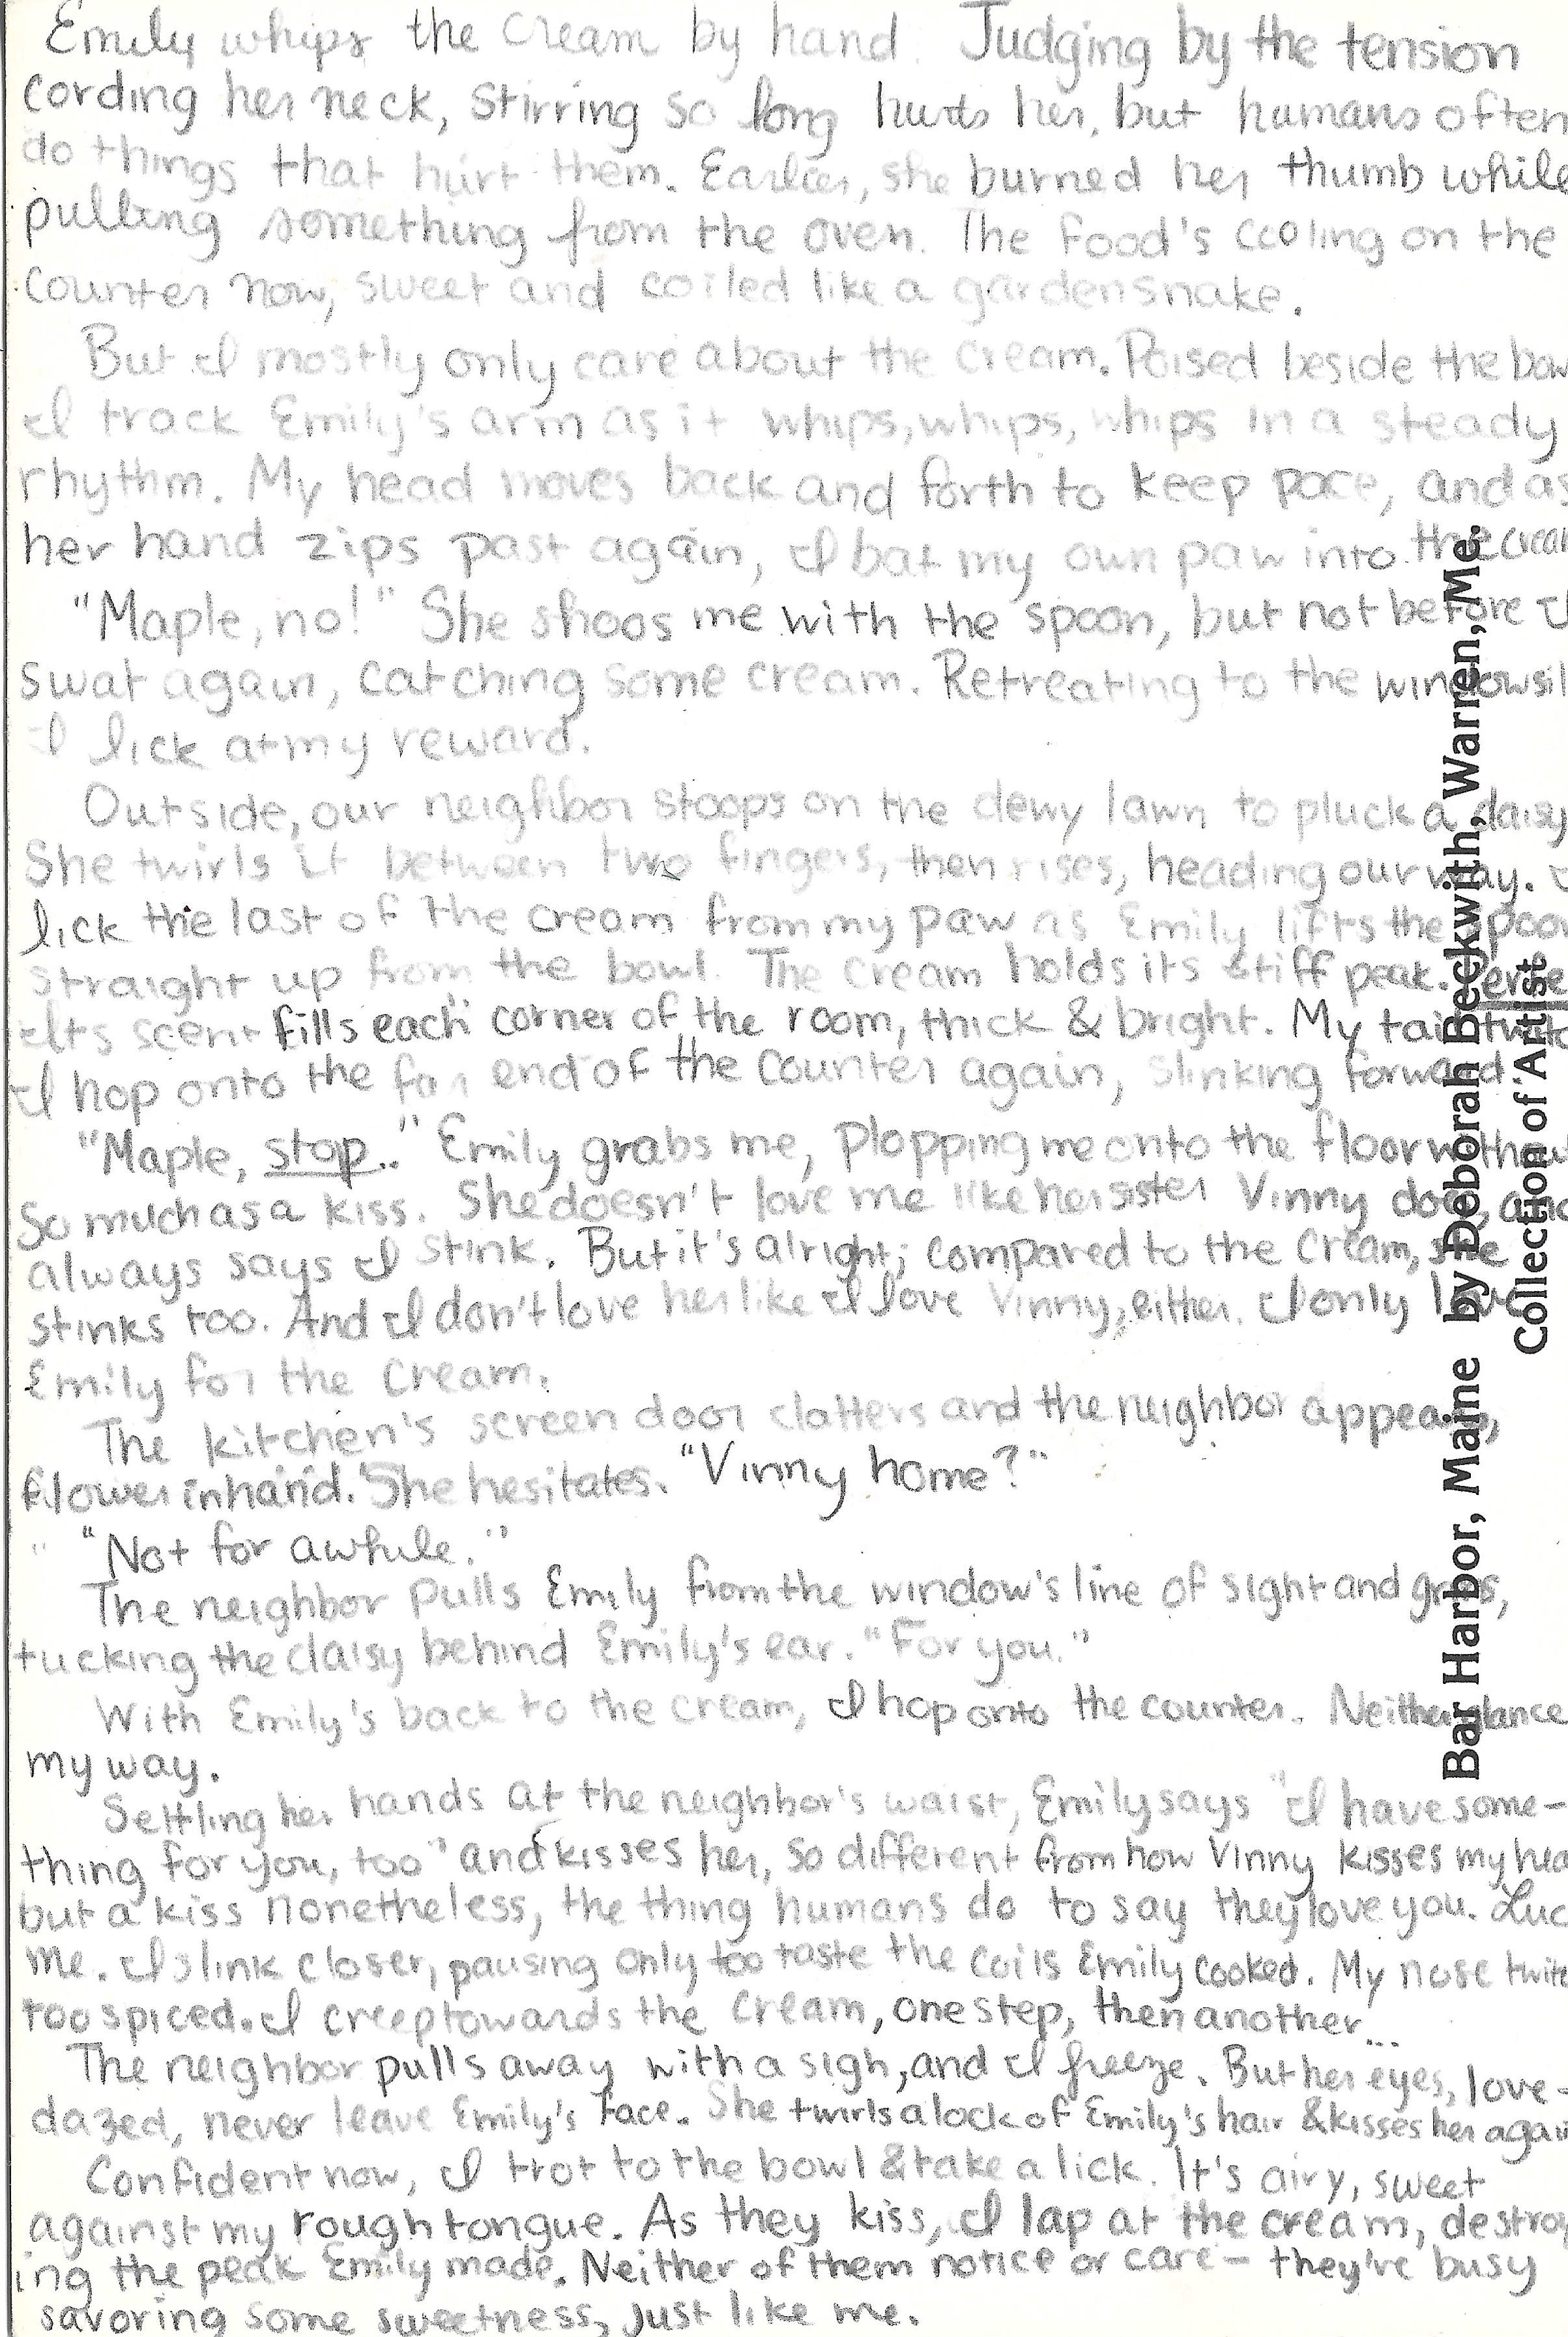 Emily whips the cream by hand. Judging by the tension
cording her neck, stirring so long hurts her, but humans often
do things that hurt them. Earlier, she burned her thumb while
pulling something from the oven. The food's cooling on the
counter now, sweet and coiled like a garden snake.
But I mostly only care about the cream. Poised beside the bow
I track Emily's arm as it whips, whips, whips in a steady
rhythm. My head moves back and forth to keep pace, and as
her hand zips past again, I bat my own paw into the cream
"Maple, no!" She shoos me with the spoon, but not before I
swat again, catching some cream. Retreating to the windowsil
I lick at my reward.
Outside, our neighbor stoops on the dewy lawn to pluck a daisy
She twirls it between two fingers, then rises, heading our way. I
lick the last of the cream from my paw as Emily lifts the spoon
straight up from the bowl. The cream holds its stiff peak.
Its scent fills each corner of the room, thick & bright. My tail
I hop onto the far end of the counter again, slinking forward.
"Maple, stop." Emily grabs me, plopping me onto the floor withou
so much as a kiss. She doesn't love me like her sister Vinny does, and
always says I stink. But it's alright; compared to the cream, she
stinks too. And I don't love her like I love Vinny, either. I only love
Emily for the cream.
The kitchen's screen door clatters and the neighbor appears,
flower in hand. She hesitates. "Vinny home?"
"Not for awhile."
The neighbor pulls Emily from the window's line of sight and grins,
tucking the daisy behind Emily's ear. "For you."
With Emily's back to the cream, I hop onto the counter. Neither glance
my way.
Settling her hands at the neighbor's waist, Emily says "I have some-
thing for you, too" and kisses her, so different from how Vinny kisses my hea
but a kiss nonetheless, the thing humans do to say they love you. Luc
me. I slink closer, pausing only too taste the coils Emily cooked. My nose twit
too spiced. I creep towards the cream, one step, then another...
The neighbor pulls away with a sigh, and I freeze. But her eyes, love-
dazed, never leave Emily's face. She twirls a lock of Emily's hair & kisses her again
Confident now, I trot to the bowl & take a lick. It's airy, sweet
against my rough tongue. As they kiss, I lap at the cream, destroy
ing the peak Emily made. Neither of them notice or care - they're busy
savoring some sweetness, just like me.
Bar Harbor, Maine by Deborah Beckwith, Warren, Me.
Collection of Artist